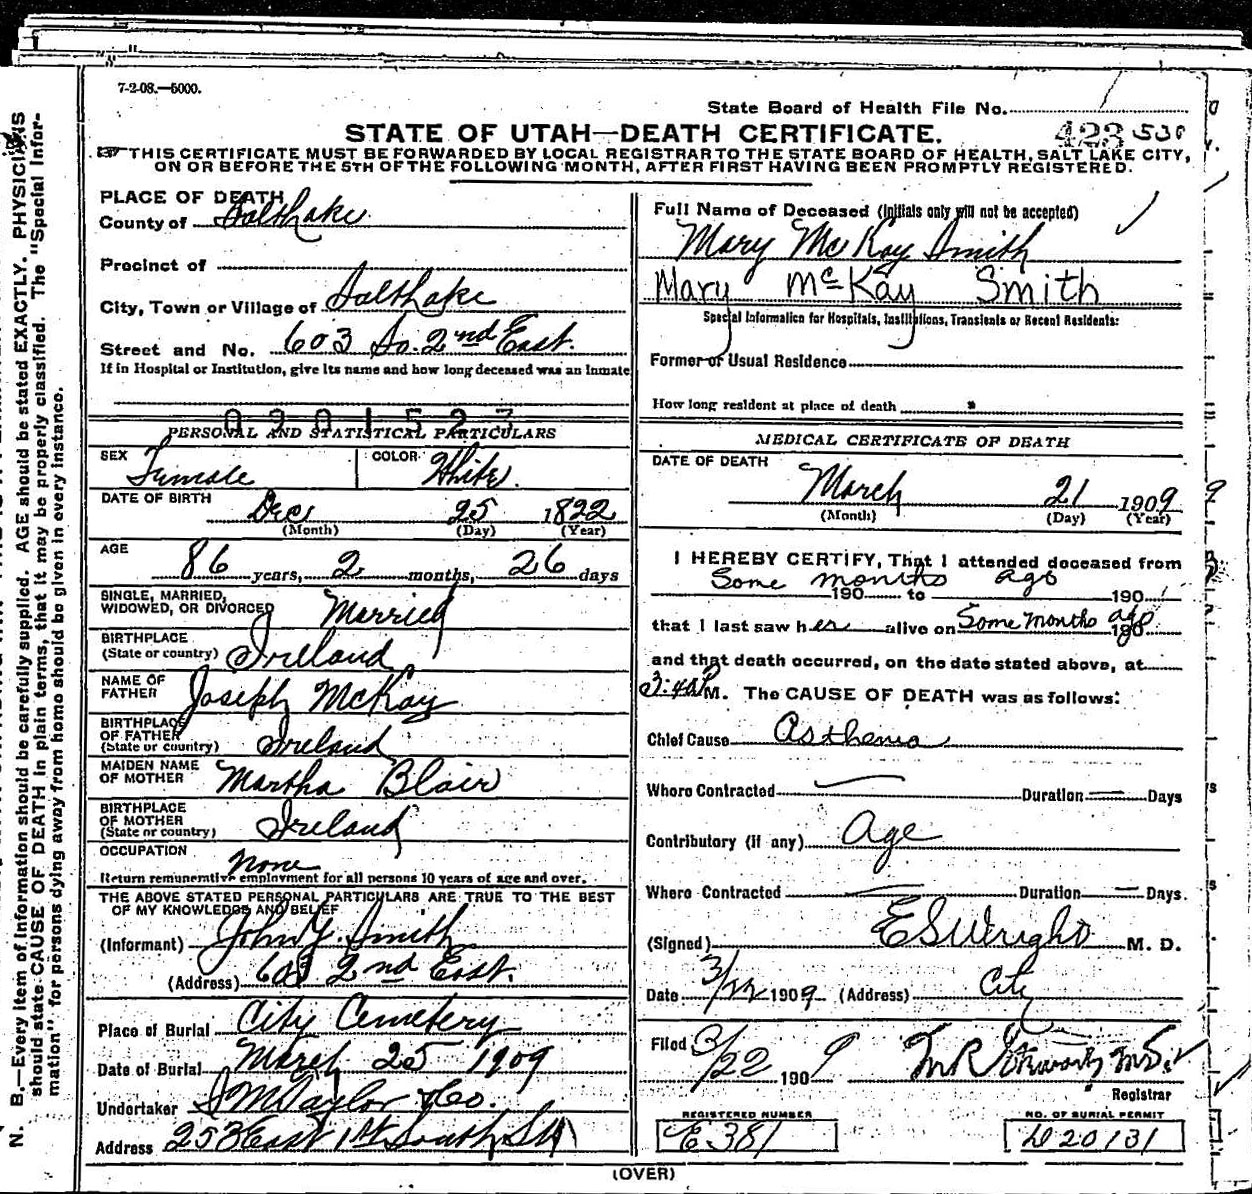 7-2-08.—5000.
State Board of Health File No.
STATE OF UTAH—DEATH CERTIFICATE.
423 530
THIS CERTIFICATE MUST BE FORWARDED BY LOCAL REGISTRAR TO THE STATE BOARD OF HEALTH, SALT LAKE CITY,
ON OR BEFORE THE 5TH OF THE FOLLOWING MONTH, AFTER FIRST HAVING BEEN PROMPTLY REGISTERED.
PLACE OF DEATH
County of Salt Lake
Precinct of
City, Town or Village of Salt Lake
Street and No. 603 So. 2nd East.
If in Hospital or Institution, give its name and how long deceased was an Inmate
0901523
PERSONAL AND STATISTICAL PARTICULARS
SEX Female COLOR White.
DATE OF BIRTH Dec 25 1822
(Month) (Day) (Year)
AGE 86 years, 2 months, 26 days
SINGLE, MARRIED,
WIDOWED, OR DIVORCED Married
BIRTHPLACE
(State or country) Ireland
NAME OF
FATHER Joseph McKay
BIRTHPLACE
OF FATHER
(State or country) Ireland
MAIDEN NAME
OF MOTHER Martha Blair
BIRTHPLACE
OF MOTHER
(State or country) Ireland
OCCUPATION None
Return remunerative employment for all persons 10 years of age and over.
THE ABOVE STATED PERSONAL PARTICULARS ARE TRUE TO THE BEST
OF MY KNOWLEDGE AND BELIEF
(Informant) John Y. Smith
(Address) 603 2nd East.
Place of Burial City Cemetery
Date of Burial March 25 1909
Undertaker S M Taylor & Co.
Address 253 East 1st South St
Full Name of Deceased (Initials only will not be accepted)
Mary McKay Smith
Mary McKay Smith
Special Information for Hospitals, Institutions, Transients or Recent Residents:
Former or Usual Residence
How long resident at place of death
MEDICAL CERTIFICATE OF DEATH
DATE OF DEATH
March 21 1909
(Month) (Day) (Year)
I HEREBY CERTIFY, That I attended deceased from
Some months ago
190 to 190
that I last saw her alive on Some months ago 190
and that death occurred, on the date stated above, at
M. The CAUSE OF DEATH was as follows:
Chief Cause Asthenia
Where Contracted Duration Days
Contributory (if any) Age
Where Contracted Duration Days
(Signed) E S Wright M. D.
Date 3/22 1909 (Address) City
Filed 3/22 1909
Registrar
REGISTERED NUMBER
E 381
NO. OF BURIAL PERMIT
D 20131
(OVER)
N. B.—Every item of information should be carefully supplied. AGE should be stated EXACTLY. PHYSICIANS
should state CAUSE OF DEATH in plain terms, that it may be properly classified. The "Special Infor-
mation" for persons dying away from home should be given in every instance.